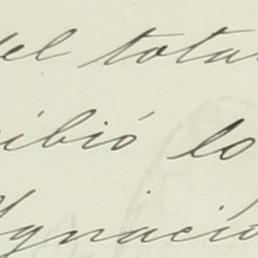 del total
cibió lo
Ygnacio